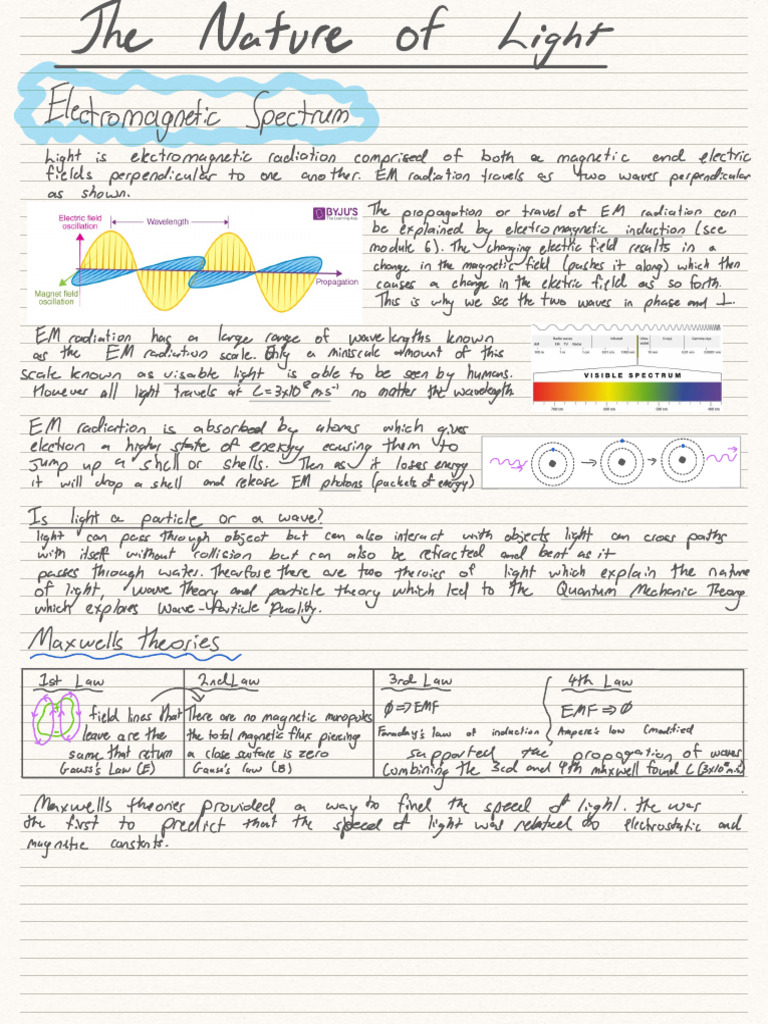 The Nature of Light
Electromagnetic Spectrum
Light is electromagnetic radiation comprised of both a magnetic and electric
fields perpendicular to one another. EM radiation travels as two waves perpendicular
as shown.
Electric field
oscillation
Wavelength
BYJU'S
The Learning App
Magnet field
oscillation
Propagation
The propagation or travel of EM radiation can
be explained by electromagnetic induction (see
module 6). The changing electric field results in a
change in the magnetic field (pushes it along) which then
causes a change in the electric field as so forth.
This is why we see the two waves in phase and ⊥.
EM radiation has a large range of wavelengths known
as the EM radiation scale. Only a miniscale amount of this
scale known as visable light is able to be seen by humans.
However all light travels at C=3x10⁸ms⁻¹ no matter the wavelength
Radio waves
Infrared
X-rays
Gamma rays
AM
VISIBLE SPECTRUM
EM radiation is absorbed by atoms which gives
electron a higher state of energy causing them to
jump up a shell or shells. Then as it loses energy
it will drop a shell and release EM photons (packets of energy)
Is light a particle or a wave?
light can pass through object but can also interact with objects light can cross paths
with itself without collision but can also be refracted and bent as it
passes through water. Thearfore there are two theroies of light which explain the nature
of light, wave theory and particle theory which led to the Quantum Mechanic Theory
which explores Wave-Particle Duality.
Maxwells theories
1st Law
field lines that
leave are the
same that return
Gauss's Law (E)
2nd Law
There are no magnetic monopoles
the total magnetic flux piercing
a close surface is zero
Gauss's law (B)
3rd Law
∅⇒EMF
Faraday's law of induction
4th Law
EMF⇒∅
Ampere's law (modified
supported the propagation of waves
Combining the 3rd and 4th maxwell found C (3x10⁸m.s)
Maxwells theories provided a way to find the speed of light. the was
the first to predict that the speed of light was related to electrostatic and
magnetic constants.